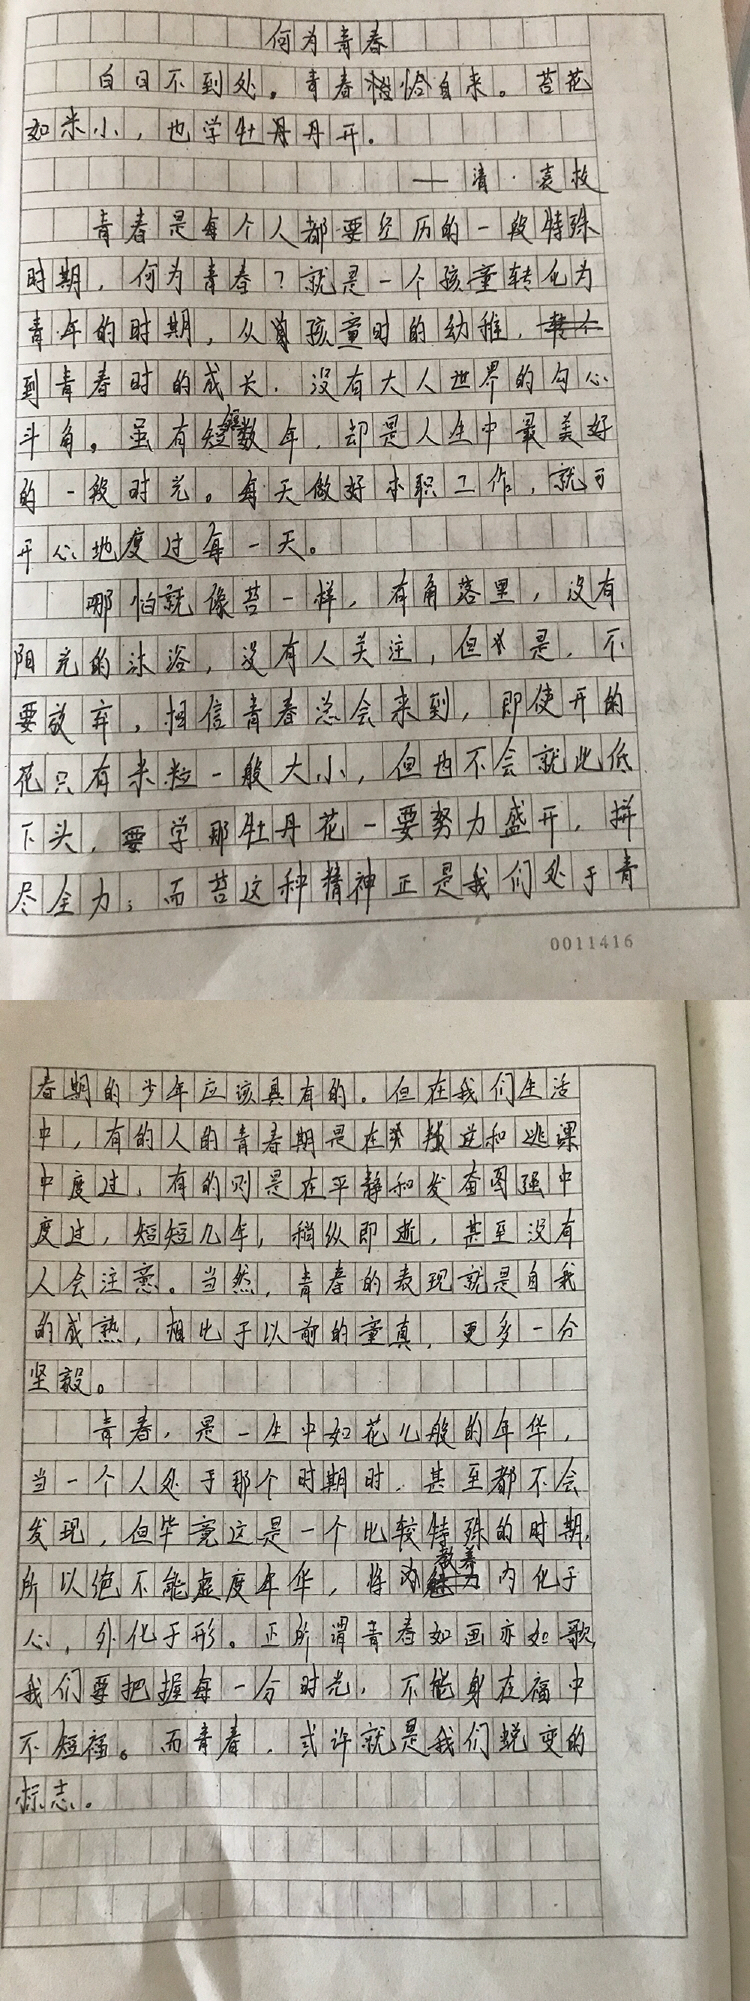 何为青春
白日不到处。青春恰自来。苔花
如米小，也学牡丹开。
——清·袁枚
青春是每个人都要经历的一段特殊
时期，何为青春？就是一个孩童转化为
青年的时期，从孩童时的幼稚，
到青春时的成长，没有大人世界的勾心
斗角。虽有短短数年，却是人生中最美好
的一段时光。每天做好本职工作，就可
开心地度过每一天。
哪怕就像苔一样，有角落里，没有
阳光的沐浴，没有人关注，但是，不
要放弃，相信青春总会来到，即使开的
花只有米粒一般大小，但也不会就此低
下头，要学那牡丹花一要努力盛开，拼
尽全力；而苔这种精神正是我们处于青
0011416
春期的少年应该具有的。但在我们生活
中，有的人的青春期是在叛逆和逃课
中度过，有的则是在平静和发奋图强中
度过，短短几年，稍纵即逝，甚至没有
人会注意。当然，青春的表现就是自我
的成熟，相比于以前的童真，更多一分
坚毅。
青春，是一生中如花儿般的年华，
当一个人处于那个时期时，甚至都不会
发现，但毕竟这是一个比较特殊的时期，
所以绝不能虚度年华，将教养内化于
心，外化于形。正所谓青春如画亦如歌，
我们要把握每一分时光，不能身在福中
不短福。而青春，或许就是我们蜕变的
标志。